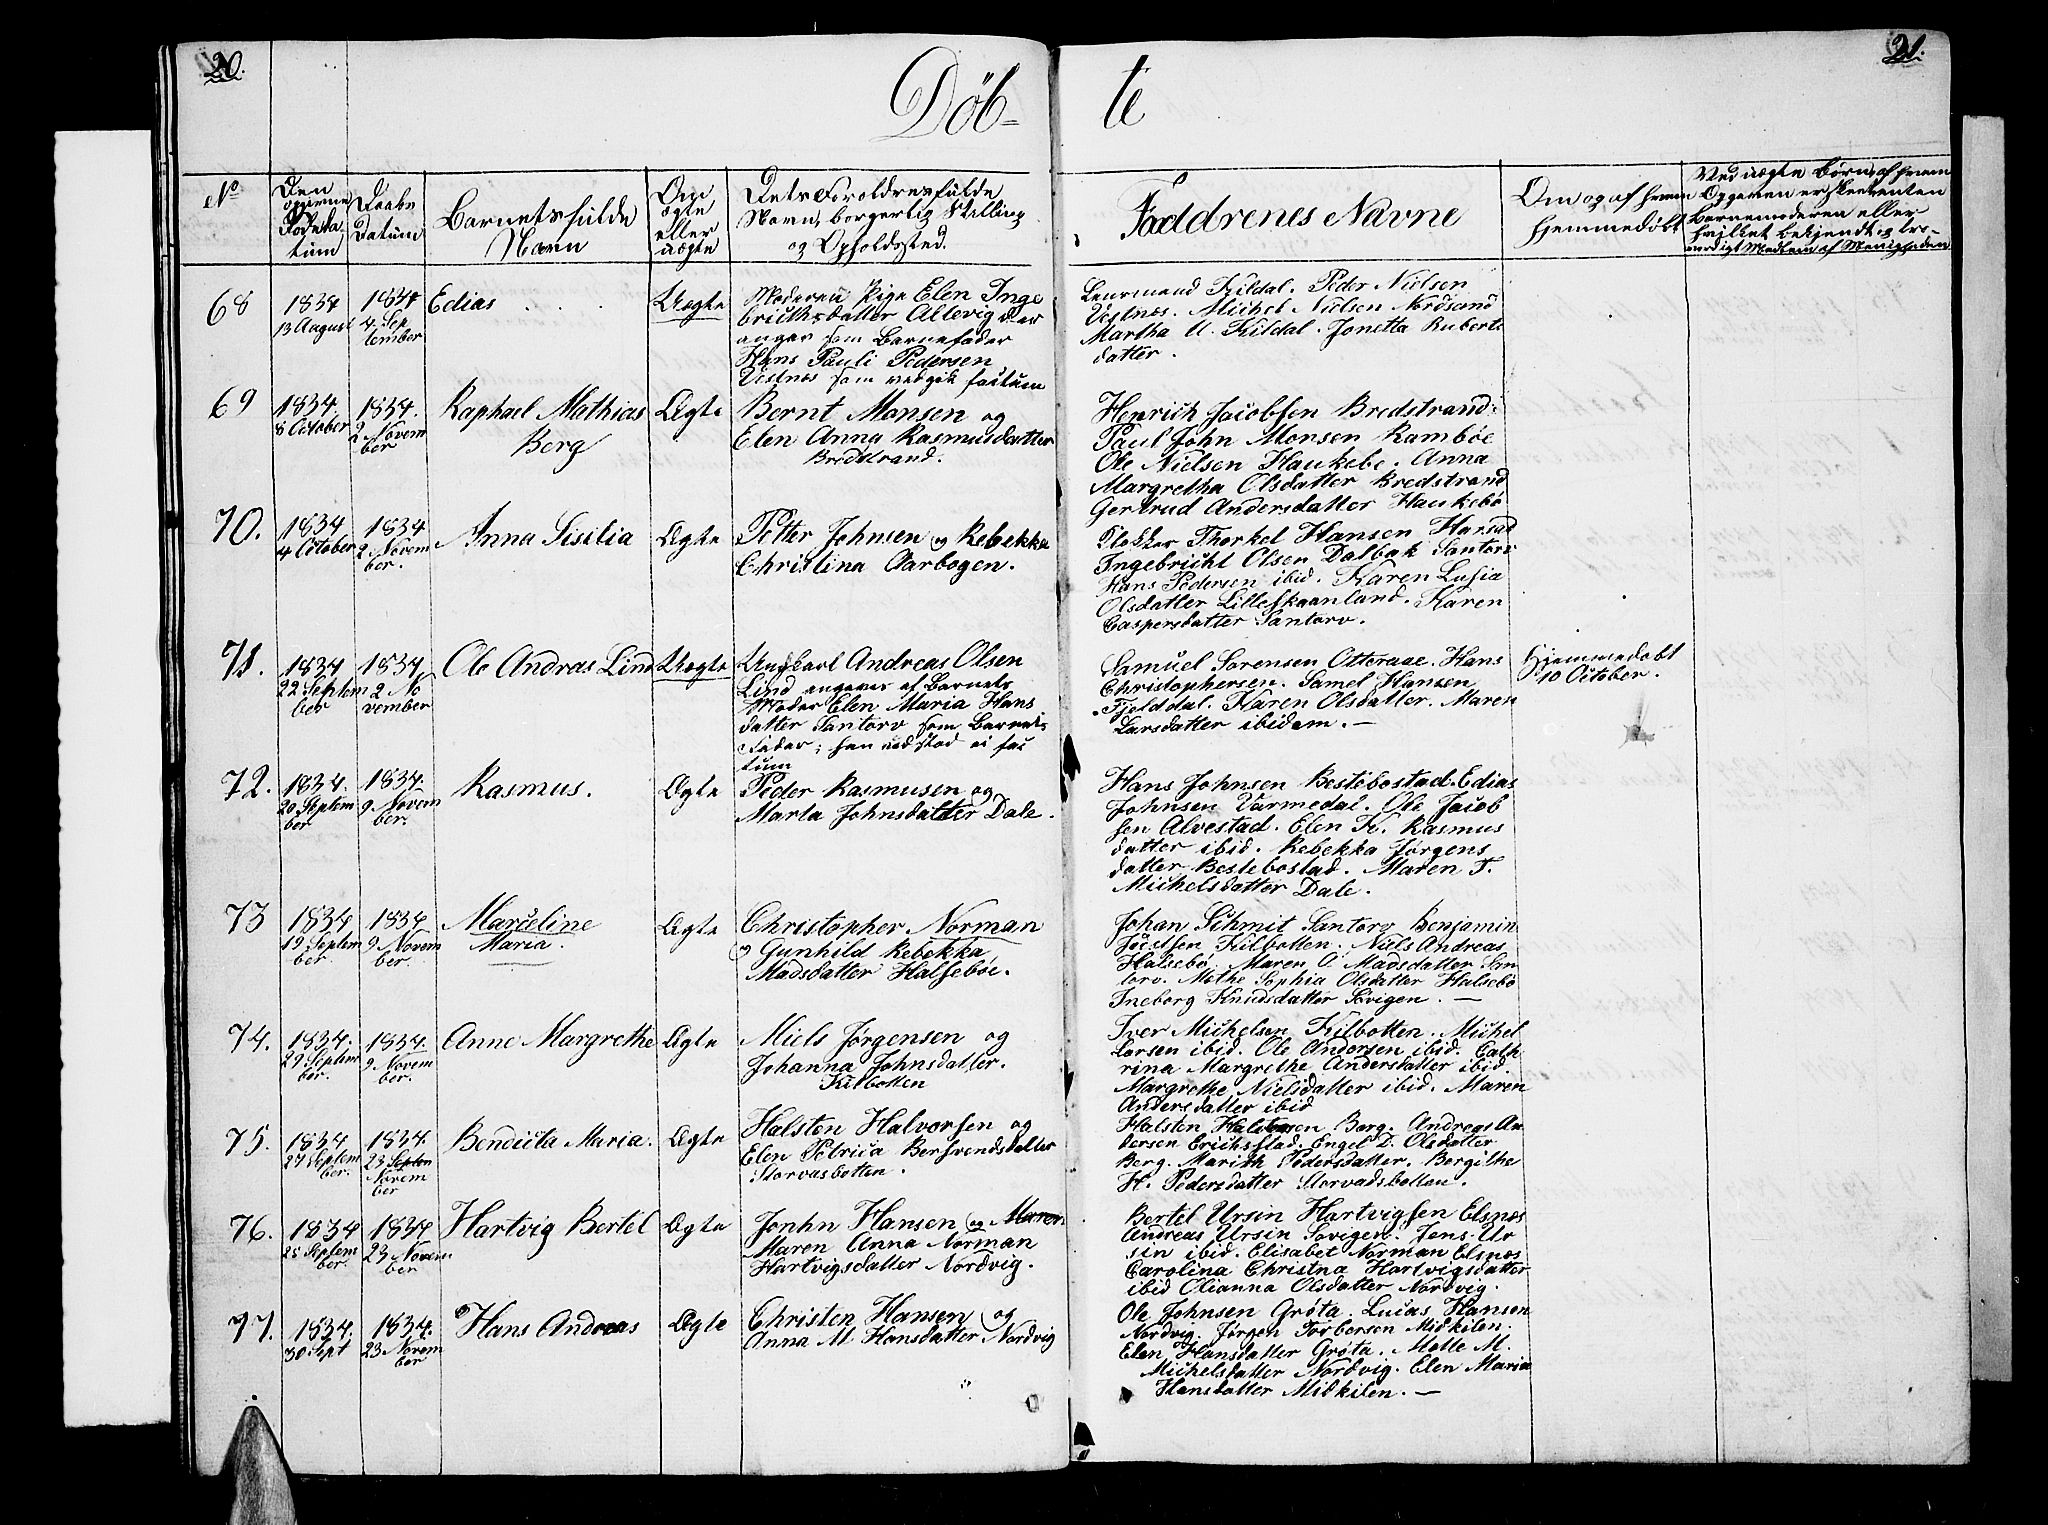 20.
21.
Döb=
te
No
Den
Fødeda
tum
Daabs
Datum
Barnets fulde
Navn
Om
ægte
eller
uægte
Dets Forældres fulde
Navn, borgerlig Stilling
og Opholdssted.
Faddrenes Navne
Om og af hvem
hjemmedøbt
Ved uægte Børn, af hvem
Opgaven er skeet enten
Barnemoderen eller
hvilket bekjendt og tro-
værdigt Medlem af Menigheden
68
1834
13 August
1834
4. Sep
tember
Edias . . .
Uægte
Moderen Pige Elen Inge
brictsdatter Allevig der
angav som Barnefader
Hans Pauli Pedersen
Vestnes som vedgik factum
Lensmand Kildal. Peder Nielsen
Vestnæs. Michel Nielsen Nordsand
Martha U. Kildal. Jonetta Ruberts
datter.
69
1834
8 October
1834.
2 Novem
ber
Raphael Mathias
Berg
Ægte
Bernt Monsen og
Elen Anna Rasmusdatter
Bredstrand.
Henrich Jacobsen Bredstrand.
Paul John Monsen Rambøe
Ole Nielsen Haukebø. Anna
Margretha Olsdatter Bredstrand
Gertrud Andersdatter Haukebö
70.
1834
4 October
1834
2 Novem
ber.
Anna Sisilia
Ægte
Petter Johnsen og Rebekka
Christina Aarbogen.
Klokker Thorkel Hansen Harsad
Ingebricht Olsen Dalbak Santorv
Hans Pedersen ibid. Karen Lusia
Olsdatter Lilleskaanland. Karen
Caspersdatter Santorv.
71.
1834
22 Septem
ber
1834
2 No
vember
Ole Andras Lind
Uægte
Ungkarl Andreas Olsen
Lind angives af Barnets
Moder Elen Maria Hans
datter Santorv som Barnets
Fader; han vedstod ei fac
tum
Samuel Sörensen Otteraae. Hans
Christophersen. Samel Hansen
Fjelddal. Karen Olsdatter. Maren
Larsdatter ibidem. —
Hjemmedøbt
10 October.
72.
1834.
20 Septem
ber
1834.
9. Novem
ber.
Rasmus.
Ægte
Peder Rasmusen og
Marta Johnsdatter Dale.
Hans Johnsen Bestebostad. Edias
Johnsen Varmedal. Ole Jacob
sen Alvestad. Elen K. Rasmus
datter ibid. Rebekka Jørgens
datter Bestebostad. Maren T.
Michelsdatter Dale.
73
1834
19 Septem
ber.
1834
9 Novem
ber.
Marceline
Maria.
Ægte
Christopher Norman
og Gunhild Rebekka
Madsdatter Halsebøe.
Johan Schmit Santorv Benjamin
Joensen Kilbotten. Niels Andreas
Halsebö. Maren O. Madsdatter San
torv. Mette Sophia Olsdatter Halsebö
Ineborg Knudsdatter Sövigen. —
74.
1834.
29 Septem
ber.
1834.
9 Novem
ber.
Anne Margrethe
Ægte
Niels Jørgensen og
Johanna Johnsdatter.
Kilbotten
Iver Michelsen Kilbotten. Michel
Larsen ibid. Ole Andersen ibid. Cath
rina Margrethe Andersdatter ibid.
Margrethe Nielsdatter ibid. Maren
Andersdatter ibid
75.
1834.
27 Septem
ber.
1834.
23 Septem
Novem
ber
Bendicta Maria.
Ægte
Halsten Halvorsen og
Elen Petrica Bersvendsdatter
Storvasbotten.
Halsten Halstensen Berg. Andreas An
dersen Erichsstad. Engel D. Olsdatter
Berg. Marith Pedersdatter. Bergithe
H. Pedersdatter Storvadsbotten.
76.
1834
25 Septem
ber.
1834
23 Novem
ber
Hartvig Bertel
Ægte
Jonhn Hansen og Maren
Maren Anna Norman
Hartvigsdatter Nordvig.
Bertel Ursin Hartvigsen Elsnæs
Andreas Ursin Sövigen. Jens Ur
sin ibid. Elisabet Norman Elsnæs
Carolina Christna Hartvigsdatter
ibid Olianna Olsdatter Nordvig.
77.
1834.
30 Sept
1834.
23 Novem
ber
Hans Andreas
Ægte
Christen Hansen og
Anna M. Hansdatter Nordvig
Ole Johnsen Grøta. Lucas Hansen
Nordvig. Jørgen Torbersen Midkilen.
Elen Hansdatter Grøta. Mette M.
Michelsdatter Nordvig. Elen Maria
Hansdatter Midkilen. —